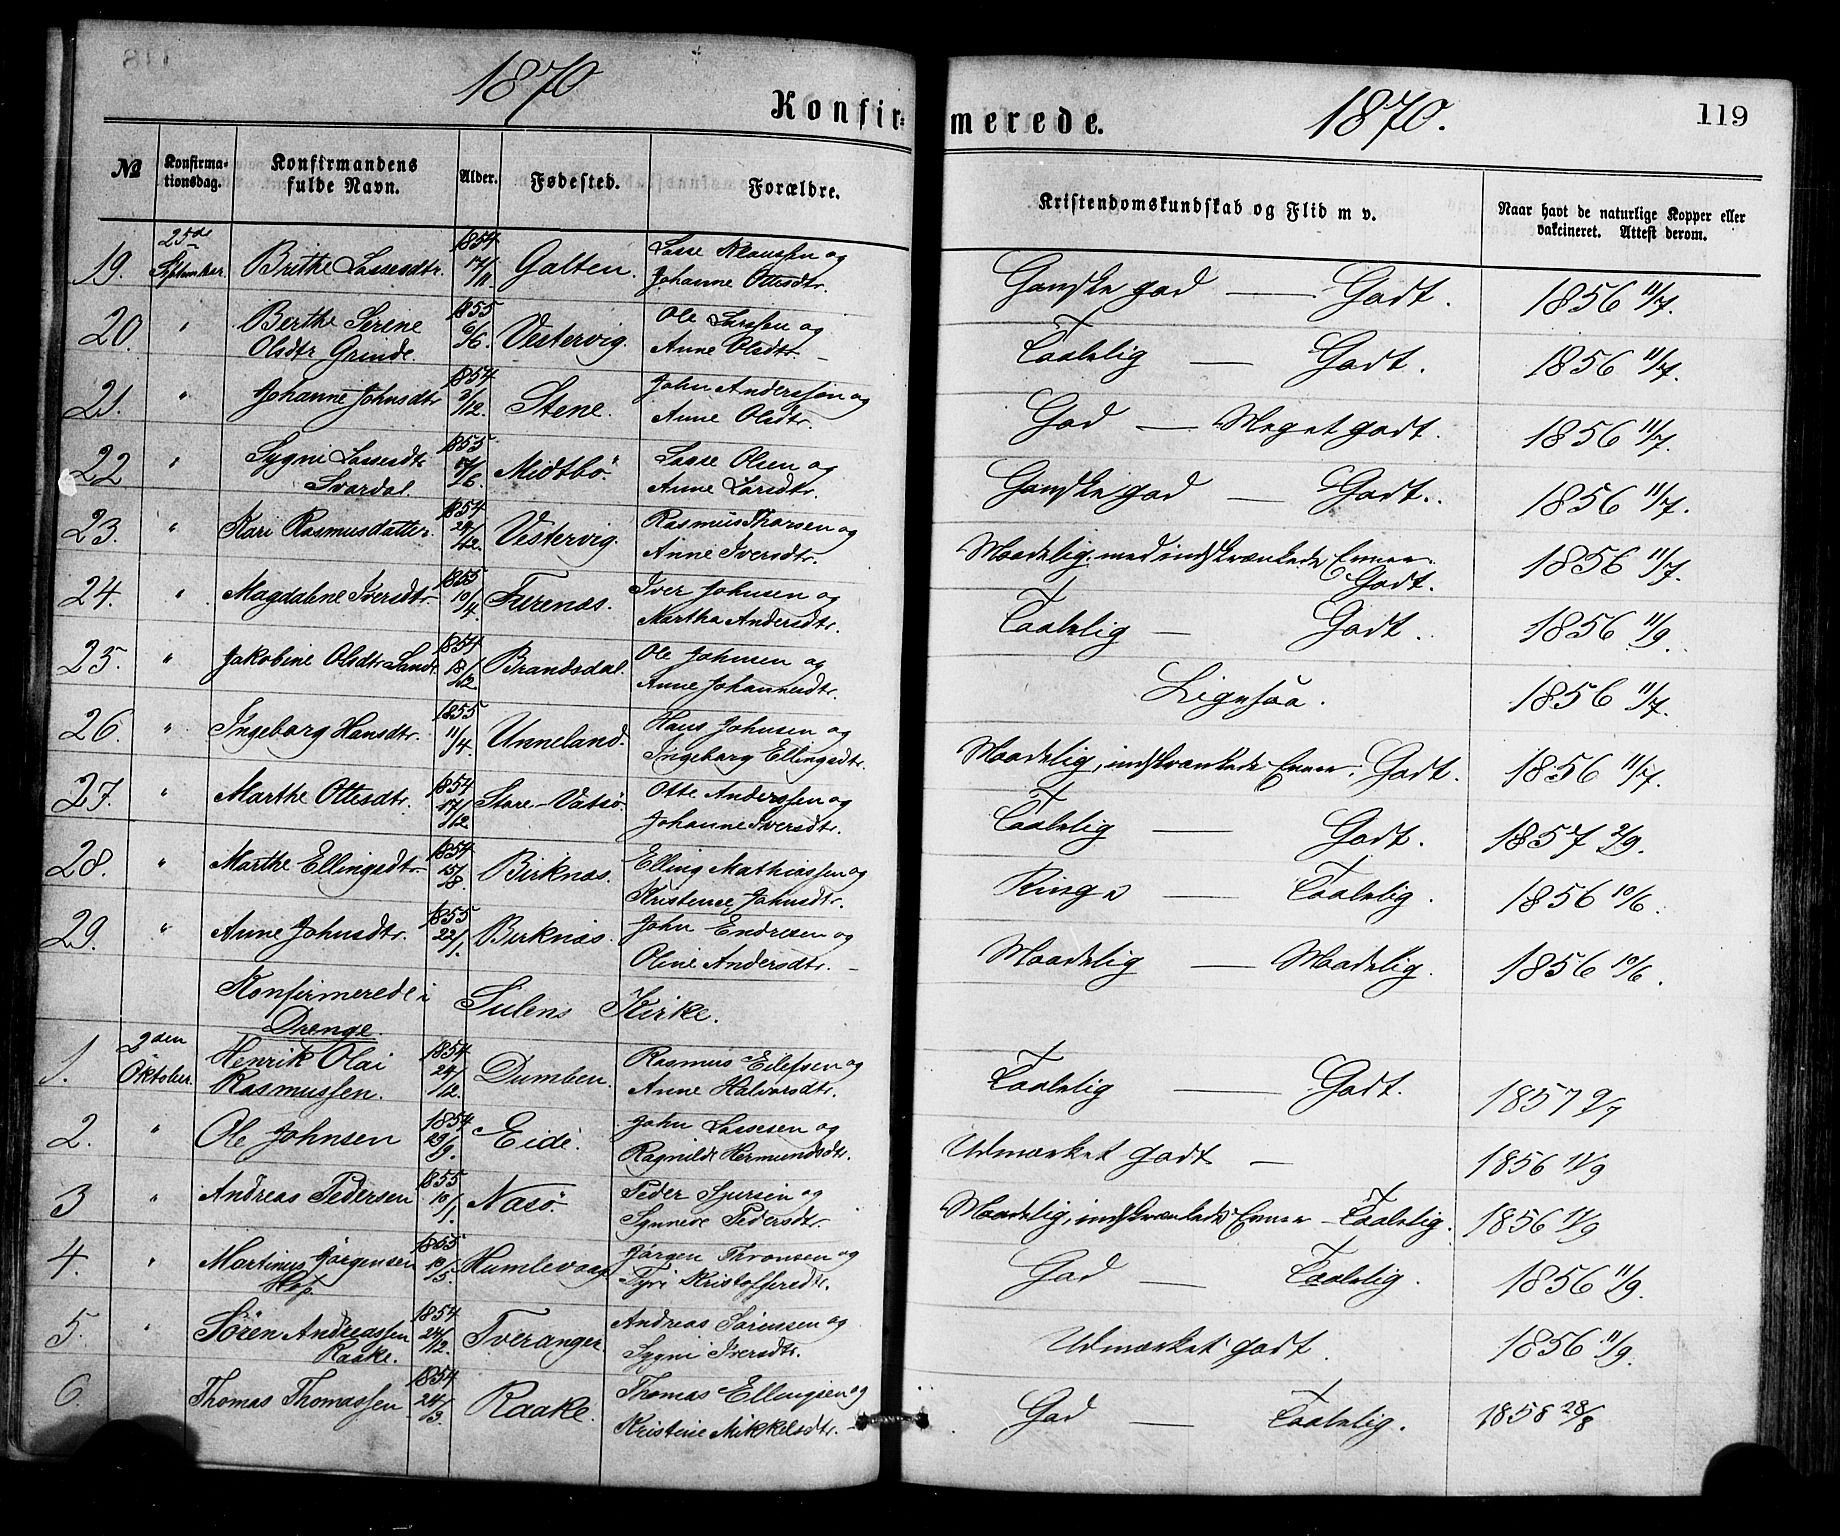 1870
Konfir=
№
Konfirma-
tionsdag.
Konfirmandens
fulde Navn.
Alder.
Fødested.
Forældre.
19. 25de September. Brithe Lassesdtr. 1854 17/11 Galten. Lasse Klaussen og
Johanne Ottesdtr.
20. " Berthe Serine 1855 6/6. Vestervig. Ole Larssen og
Olsdtr Grinde. Anne Olsdtr. –
21. " Johanne Johnsdtr 1854 3/12. Stene. John Anderssen og
Anne Olsdtr.
22 " Sygni Lassesdtr 1855 17/6. Midtbö. Lasse Olsen og
Svardal. Anne Larsdtr.
23. " Kari Rasmusdatter. 1854 29/12. Vestervig. Rasmus Thorsen og
Anne Iversdtr.
24. " Magdalene Iversdtr. 1855 10/4. Furenæs. Iver Johnsen og
Martha Andersdtr.
25. " Jakobine Olsdtr Sandt. 1854 18/12 Brandsdal. Ole Johnsen og
Anne Johannesdtr.
26. " Ingeborg Hansdtr. 1855 11/4. Unneland. Hans Johnsen og
Ingeborg Ellingsdtr.
27. " Marthe Ottesdtr. 1854 17/12 Store-Vatsö. Otte Anderssen og
Johanne Iversdtr.
28. " Marthe Ellingsdtr. 1854 15/8. Birknæs. Elling Mathiassen og
Kristence Johnsdtr.
29. " Anne Johnsdtr. 1855 22/1. Birknæs. John Endresen og
Oline Andersdtr. –
Konfirmerede i Sulens Kirke.
Drenge.
1. 2den Oktober. Henrik Olai 1854 24/12. Dumben. Rasmus Eilefsen og
Rasmussen. Anne Halvorsdtr.
2. " Ole Johnsen 1854 29/9. Eide. John Lassesen og
Ragnilde Hermundsdtr.
3 " Andreas Pedersen 1855 10/1. Nasö. Peder Sjursen og
Synneve Pedersdtr.
4. " Martinus Jörgensen 1855 10/5. Humlevaag Jörgen Thronsen og
Hop. Tyri Kristoffersdtr.
5. " Sören Andreassen 1854 24/12. Tveranger. Andreas Sörensen og
Raake. Sygni Iversdtr.
6. Thomas Thomassen 1854 24/3. Raake. Thomas Ellingsen og
Kristine Mikkelsdtr. –
merede.
1870.
119
Kristendomskundskab og Flid m v.
Naar havt de naturlige Kopper eller
vakcineret. Attest derom.
Ganske god — Godt. 1856 11/7.
Taalelig — Godt. 1856 11/7.
God — Meget godt. 1856 11/7.
Ganske god — Godt.. 1856 11/7.
Maadelig. med indskrænkede Evner. 1856 11/7.
Godt.
Taalelig — Godt. 1856 11/9.
Ligesaa. 1856 11/7.
Maadelig, indskrænkede Evner. Godt. 1856 11/7.
Taalelig — Godt. 1857 2/9.
Ringe — Taalelig. 1856 10/6.
Maadelig — Maadelig. 1856 10/6.
Taalelig — Godt. 1857 9/7
Udmærket godt — 1856 11/9
Maadelig, indskrænkede Evner – Taalelig. 1856 11/9
God — Taalelig. 1856 11/9.
Udmærket godt. 1856 11/9.
God — Taalelig. 1858 28/8